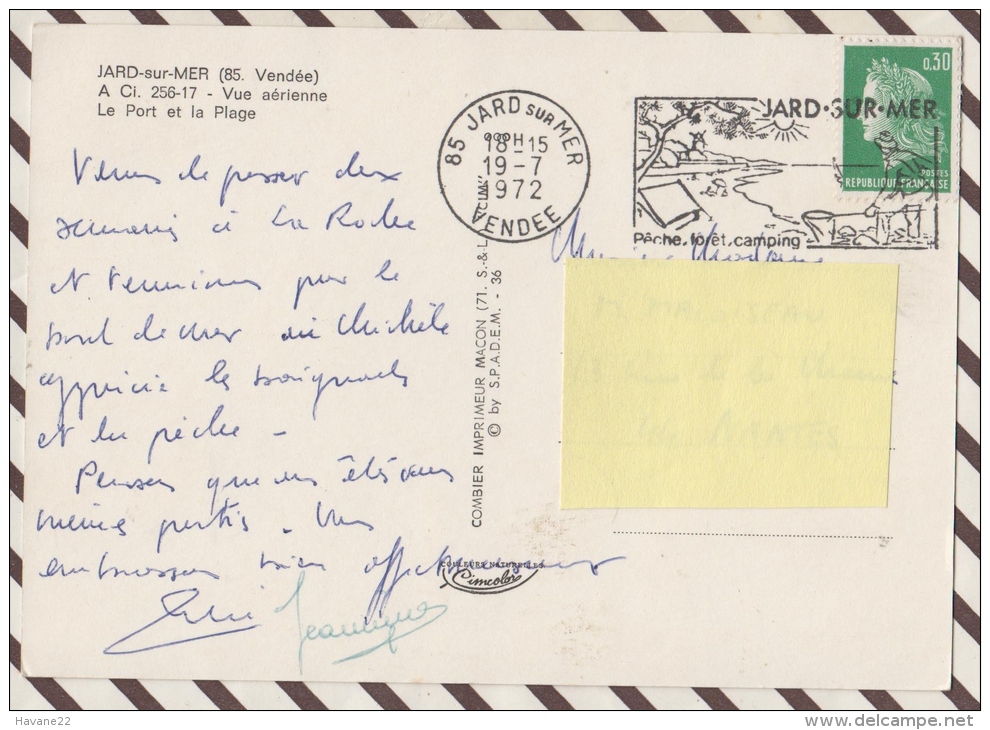 JARD-sur-MER (85. Vendée)
A Ci. 256-17 - Vue aérienne
Le Port et la Plage
85 JARD SUR MER
18H-15
19-7
1972
VENDEE
JARD·SUR·MER
Pêche, forêt, camping
0,30
POSTES
REPUBLIQUE FRANÇAISE
Venons de passer deux
semaines à La Roche
et terminons par le
bord de mer où Michèle
apprécie les baignades
et la pêche -
Pensons que vous êtes vous
même partis - Vous
embrassons bien affectueusement
Jeannine
COMBIER IMPRIMEUR MACON (71. S.-&-L.) "CIM"
© by S.P.A.D.E.M. - 36
COULEURS NATURELLES
Cimcolor
Havane22
www.delcampe.net